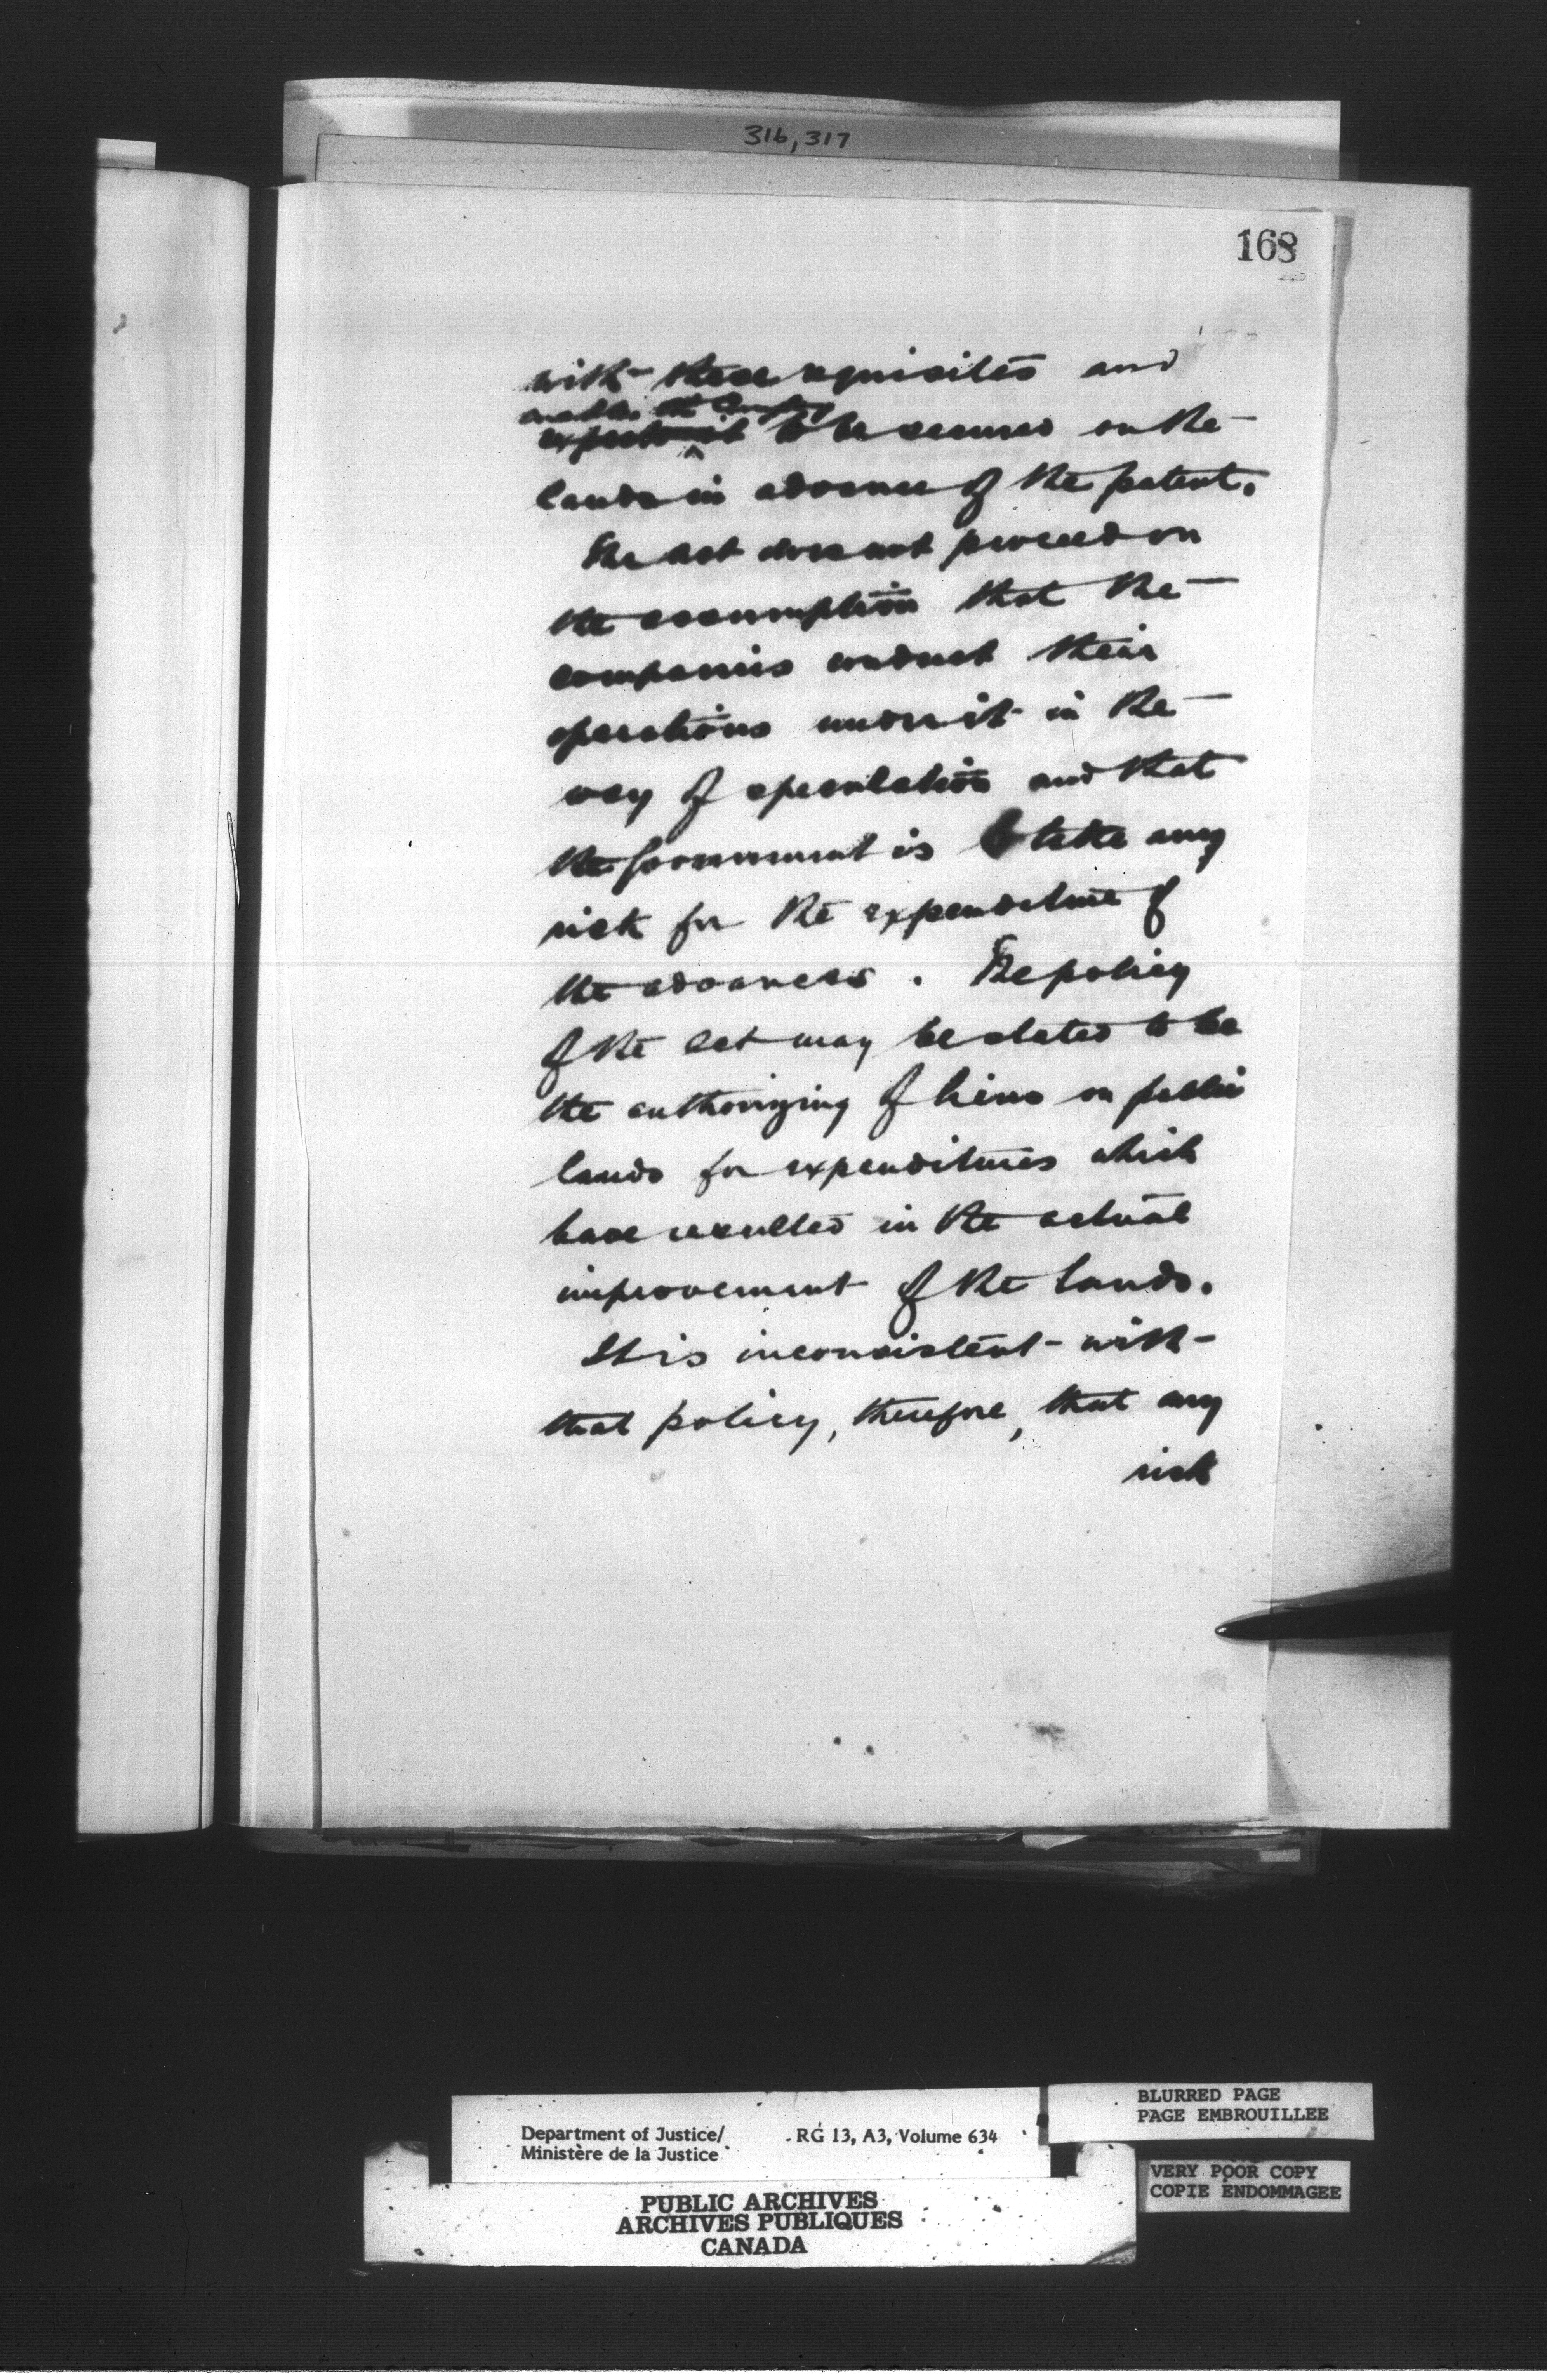 316, 317
168
with these requisites and
enables the Company
expects it to be secured on the
lands in advance of the patent.
The Act does not proceed on
the assumption that the
companies conduct their
operations under it in the
way of speculation and that
the Government is to take any
risk for the expenditure of
the advances. The policy
of the Act may be stated to be
the authorizing of liens on public
lands for expenditures which
have resulted in the actual
improvement of the lands.
It is inconsistent with
that policy, therefore, that any
risk
Department of Justice/ RG 13, A3, Volume 634
Ministère de la Justice
PUBLIC ARCHIVES
ARCHIVES PUBLIQUES
CANADA
BLURRED PAGE
PAGE EMBROUILLEE
VERY POOR COPY
COPIE ENDOMMAGEE